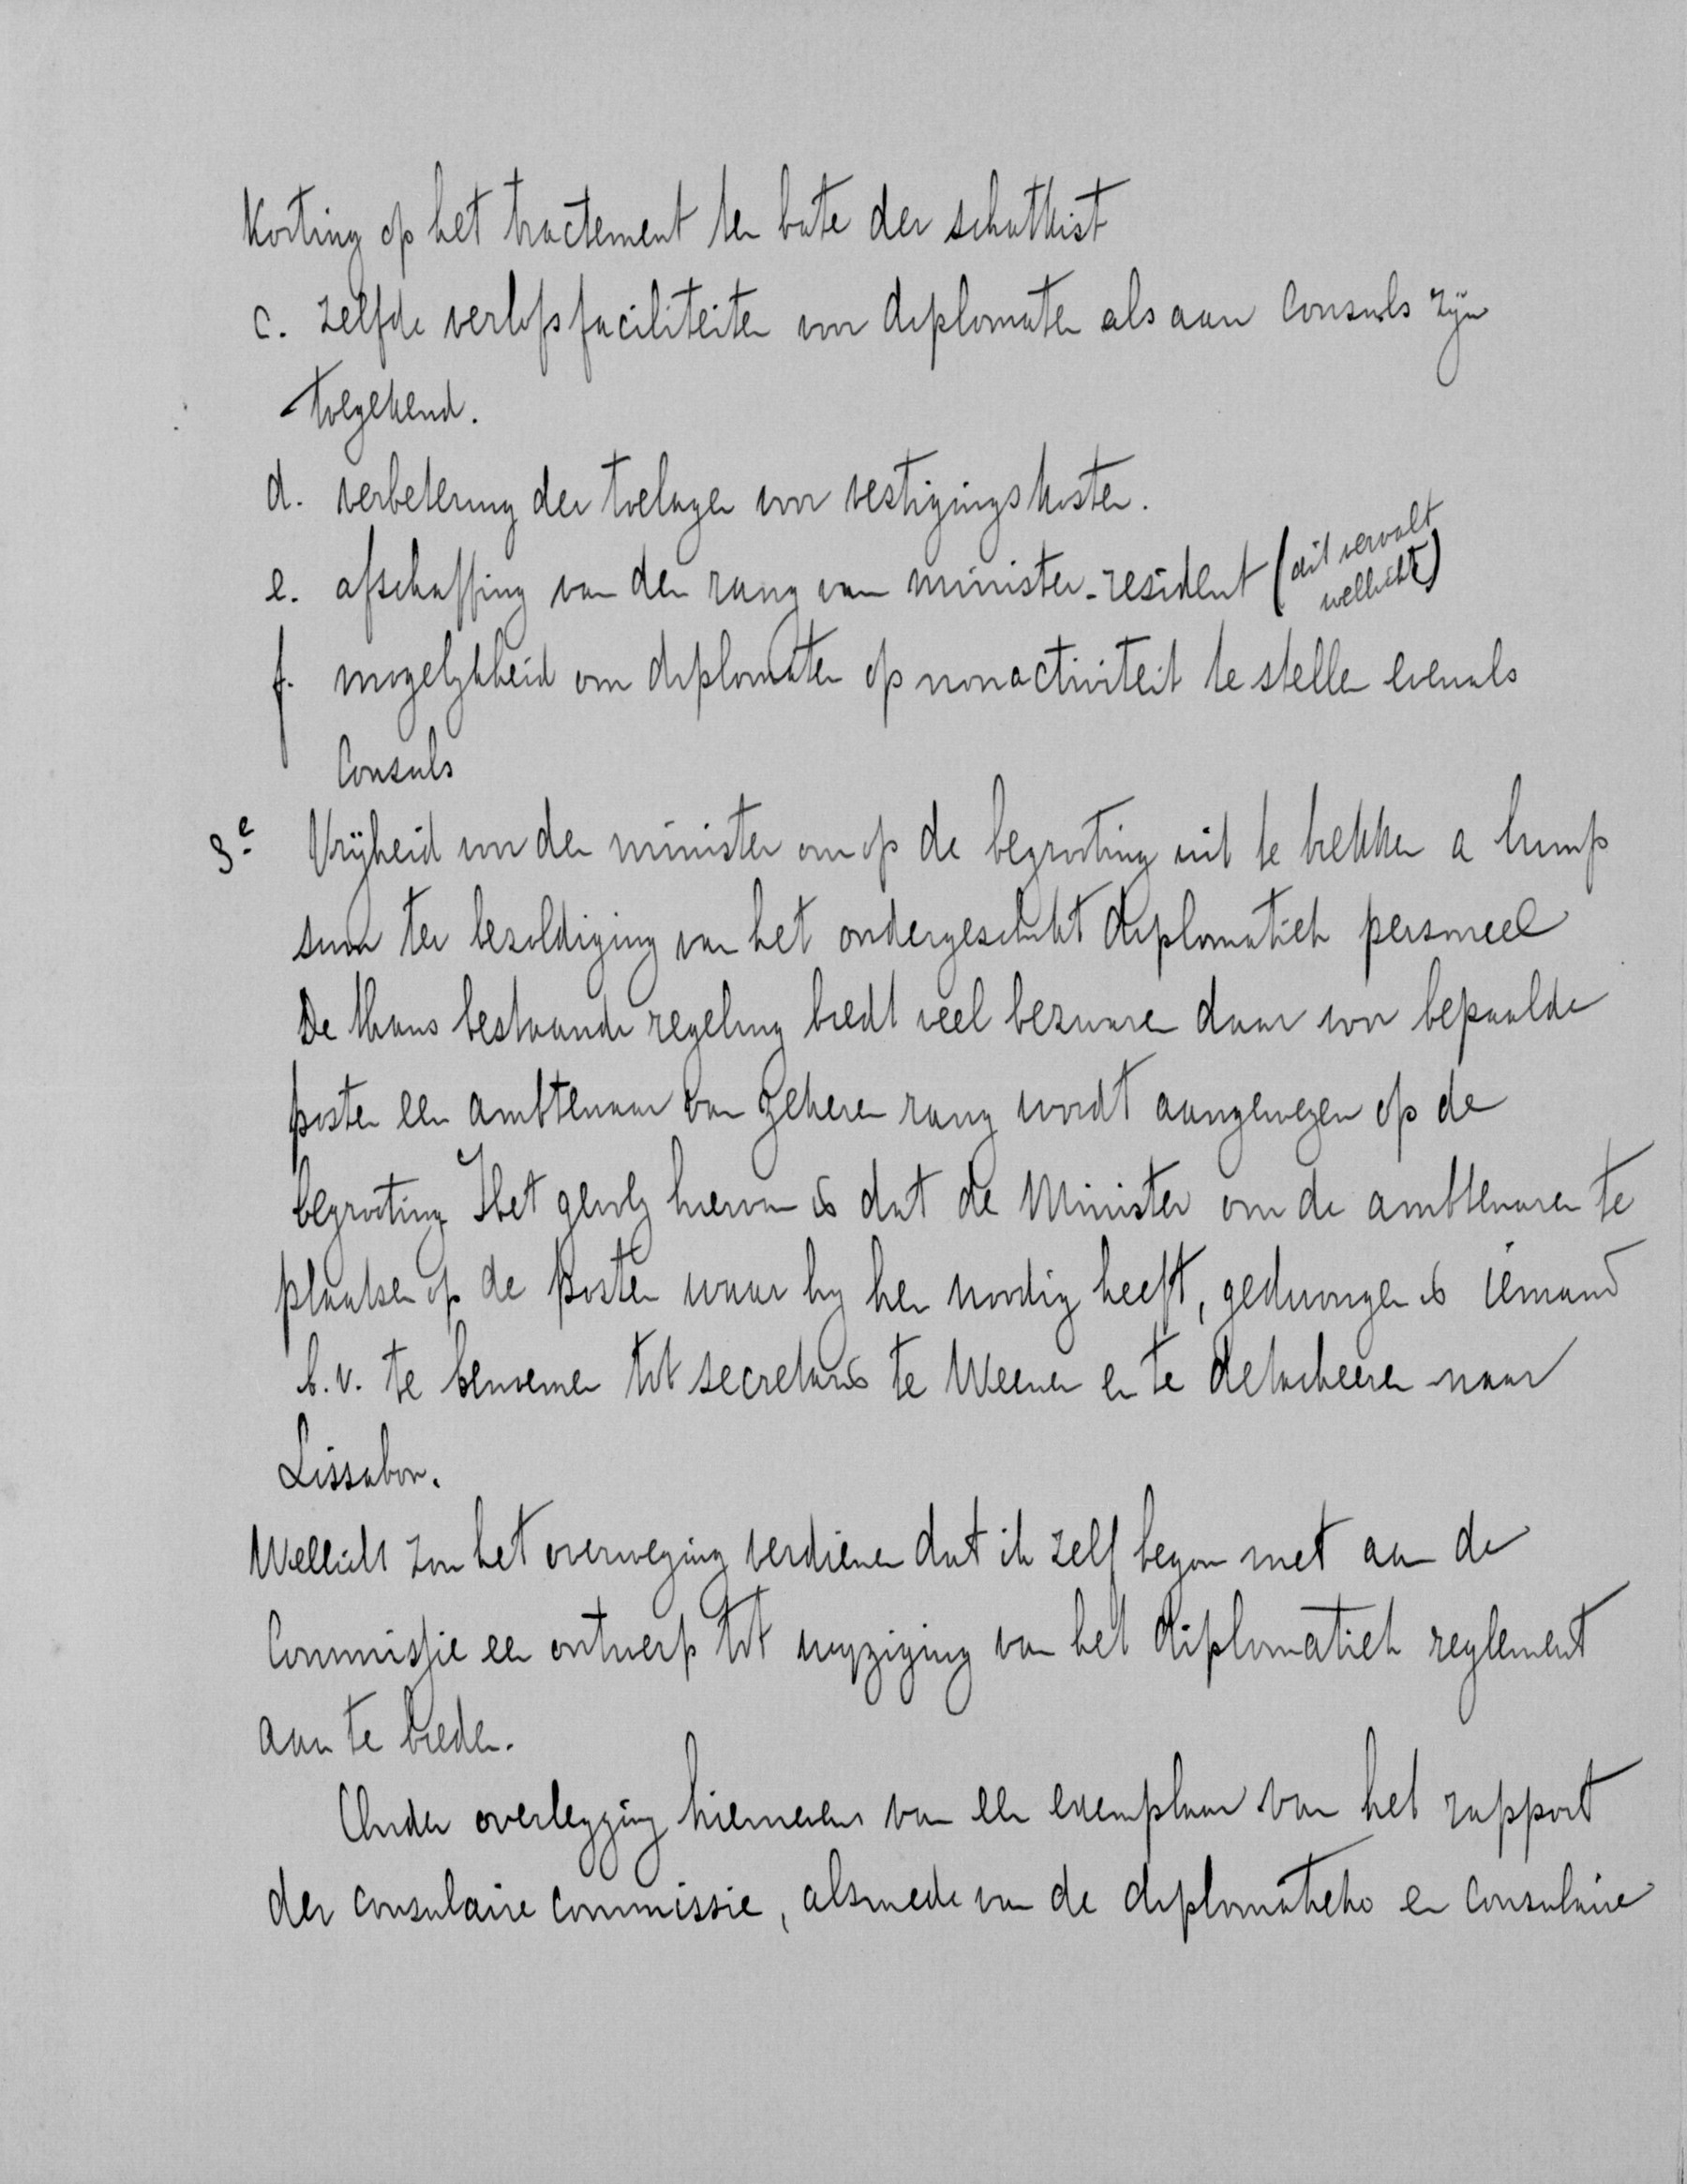 Korting op het tractement ten bate der schatkist
c. zelfde verlofsfaciliteiten voor diplomaten als aan Consuls zijn
toegekend.
d. verbetering der toelagen voor vestigingskosten.
e. afschaffing van den rang van minister-resident (dit vervalt
wellicht)
f. mogelykheid om diplomaten op nonactiviteit te stellen evenals
Consuls
3e Vrijheid voor den minister om op de begrooting uit te trekken a lump
sum ter bezoldiging van het ondergeschikt diplomatiek personeel
De thans bestaande regeling biedt veel bezwaren daar voor bepaalde
posten een ambtenaar van zekeren rang wordt aangewezen op de
begrooting Het gevolg hiervan is dat de Minister om de ambtenaren te
plaatsen op de posten waar hy hen noodig heeft, gedwongen is iemand
b.v. te benoemen tot secretaris te Weenen en te detacheeren naar
Lissabon.
Wellicht zou het overweging verdienen dat ik zelf begon met aan de
Commissie een ontwerp tot wyziging van het diplomatiek reglement
aan te bieden.
Onder overlegging hiernevens van een exemplaar van het rapport
der consulaire commissie, alsmede van de diplomatieke en Consulaire